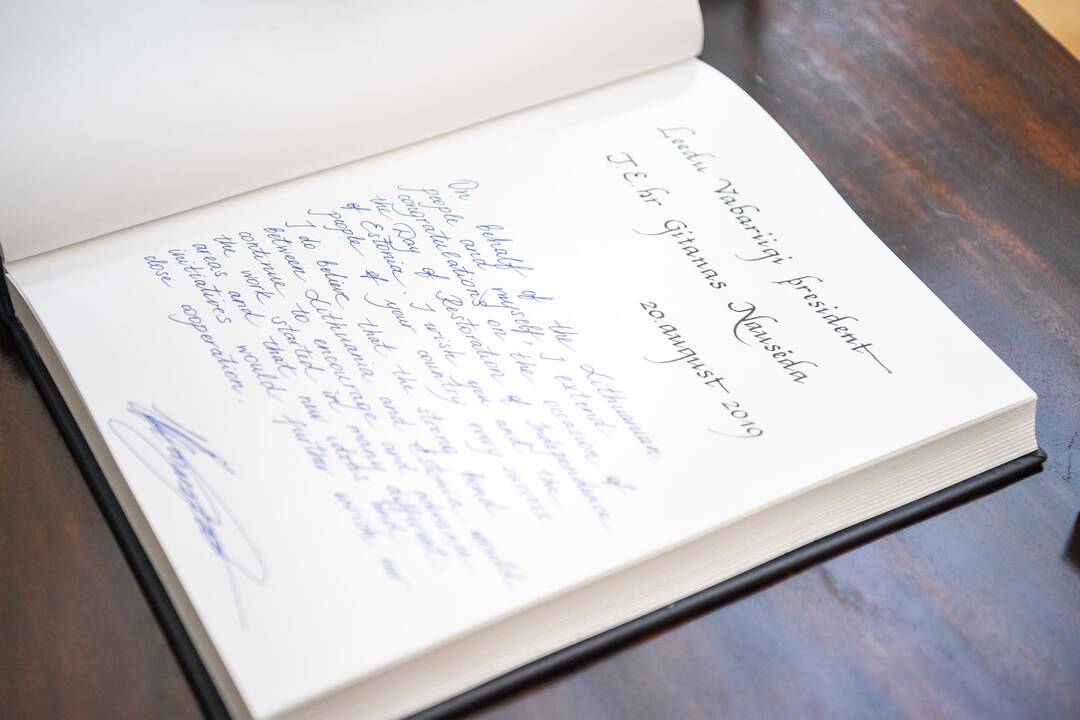 Leedu Vabariigi president
T.E. hr Gitanas Nausėda
20. august 2019
On behalf of the Lithuanian
people and myself, I extend
congratulations on the occasion of
the Day of Restoration of Independence
of Estonia. I wish you and the
people of your country every success
I do believe that the strong bond
between Lithuania and Estonia would
continue to encourage many and
the work started in
areas and that new ideas
initiatives would further enrich our
close cooperation.